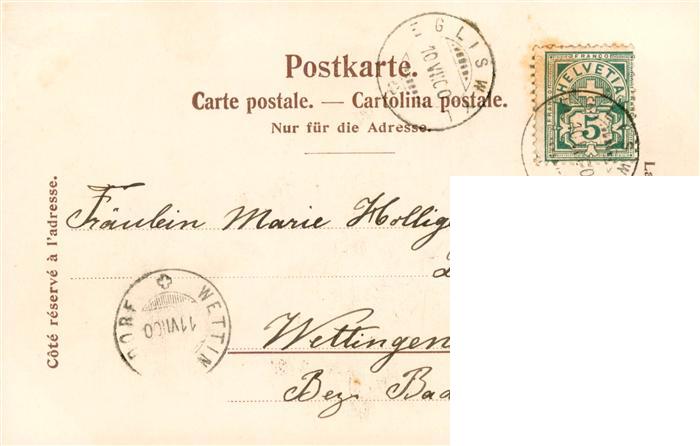 Postkarte.
Carte postale. — Cartolina postale.
Nur für die Adresse.
Côté réservé à l'adresse.
FRANCO
HELVETIA
5
10 VII 00
Fräulein Marie
Wettingen
Bez.
WETTIN
DORF
11 VII 00